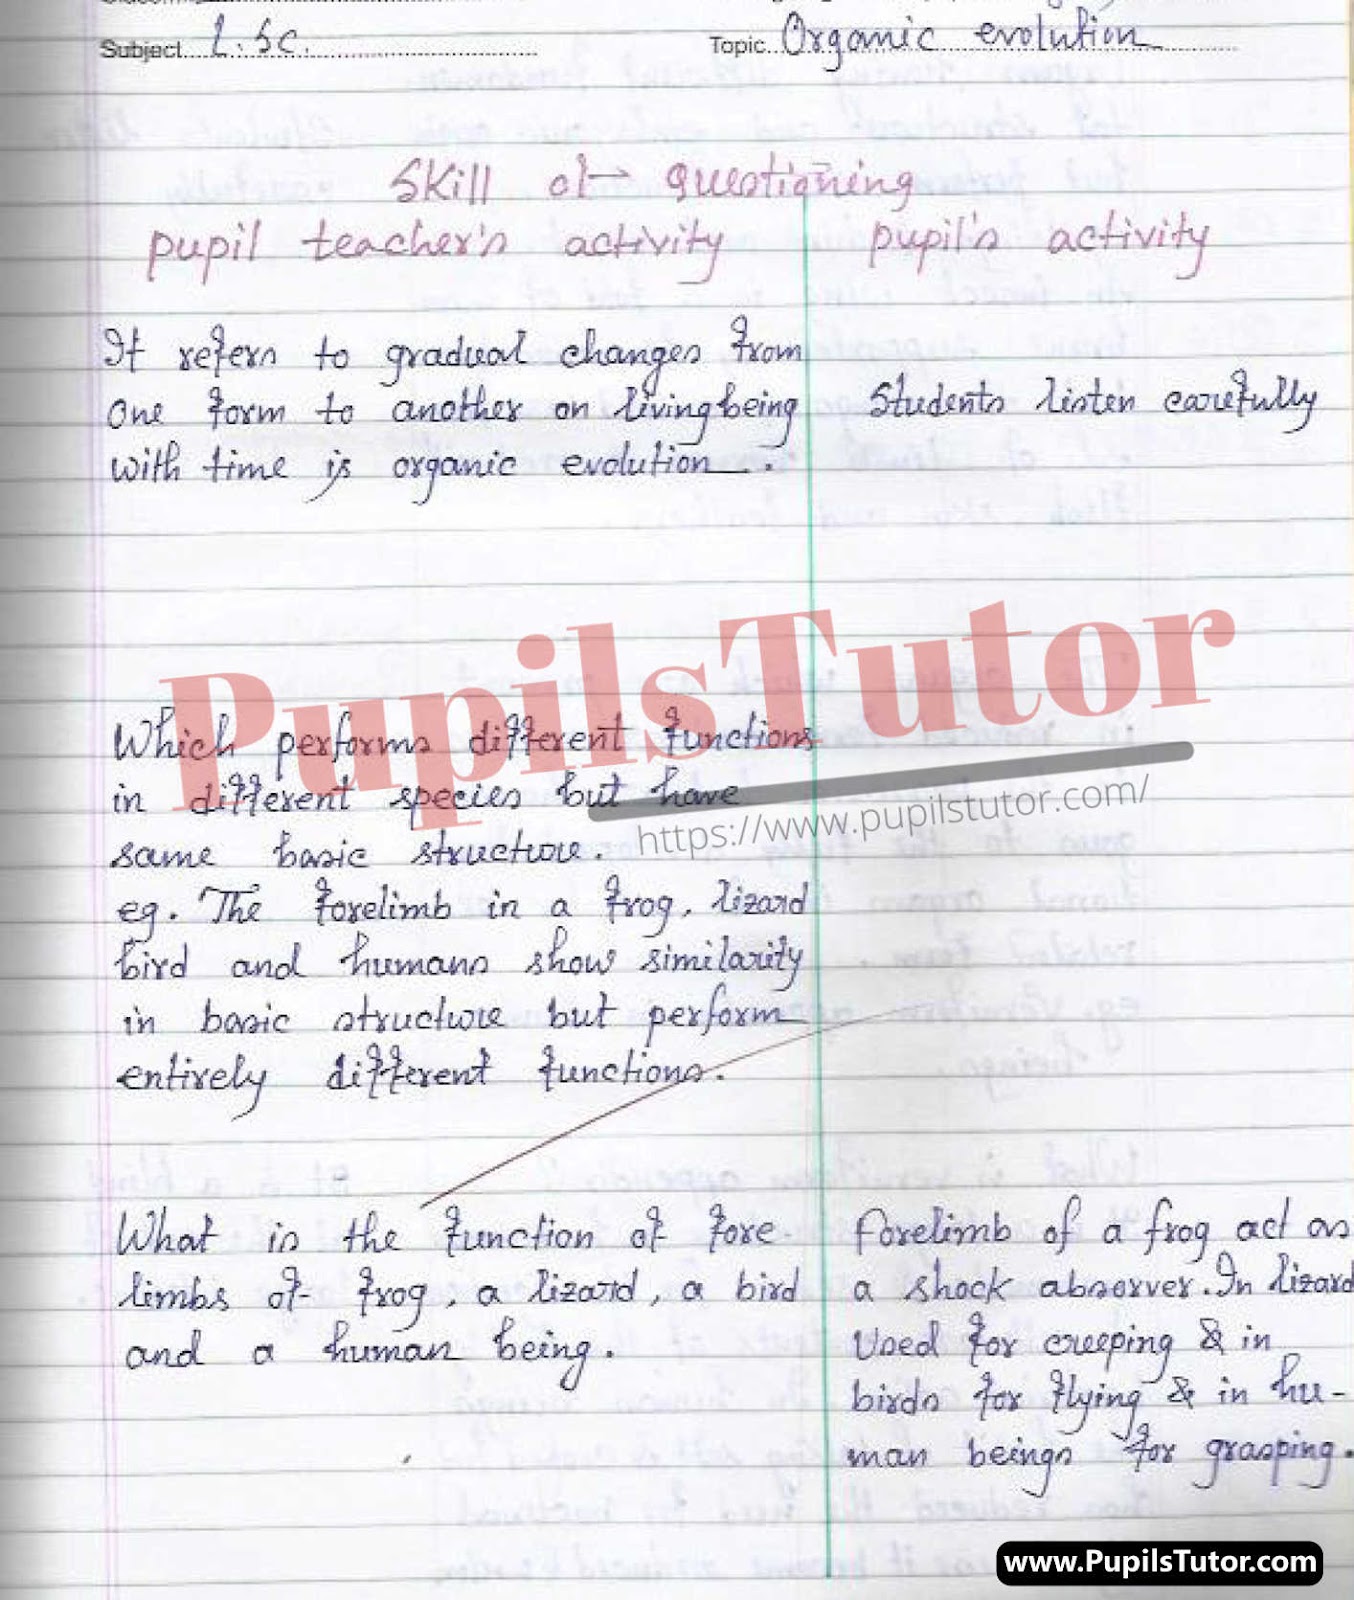 Subject L.Sc. Topic Organic evolution
Skill of questioning
pupil teacher's activity pupil's activity
It refers to gradual changes from
one form to another on living being
with time is organic evolution.
Students listen carefully
PupilsTutor
https://www.pupilstutor.com/
Which performs different functions
in different species but have
same basic structure.
eg. The forelimb in a frog, lizard
bird and humans show similarity
in basic structure but perform
entirely different functions.
What is the function of fore
limbs of frog, a lizard, a bird
and a human being.
Forelimb of a frog act as
a shock absorver. In lizard
Used for creeping & in
birds for flying & in hu-
man beings for grasping.
www.PupilsTutor.com